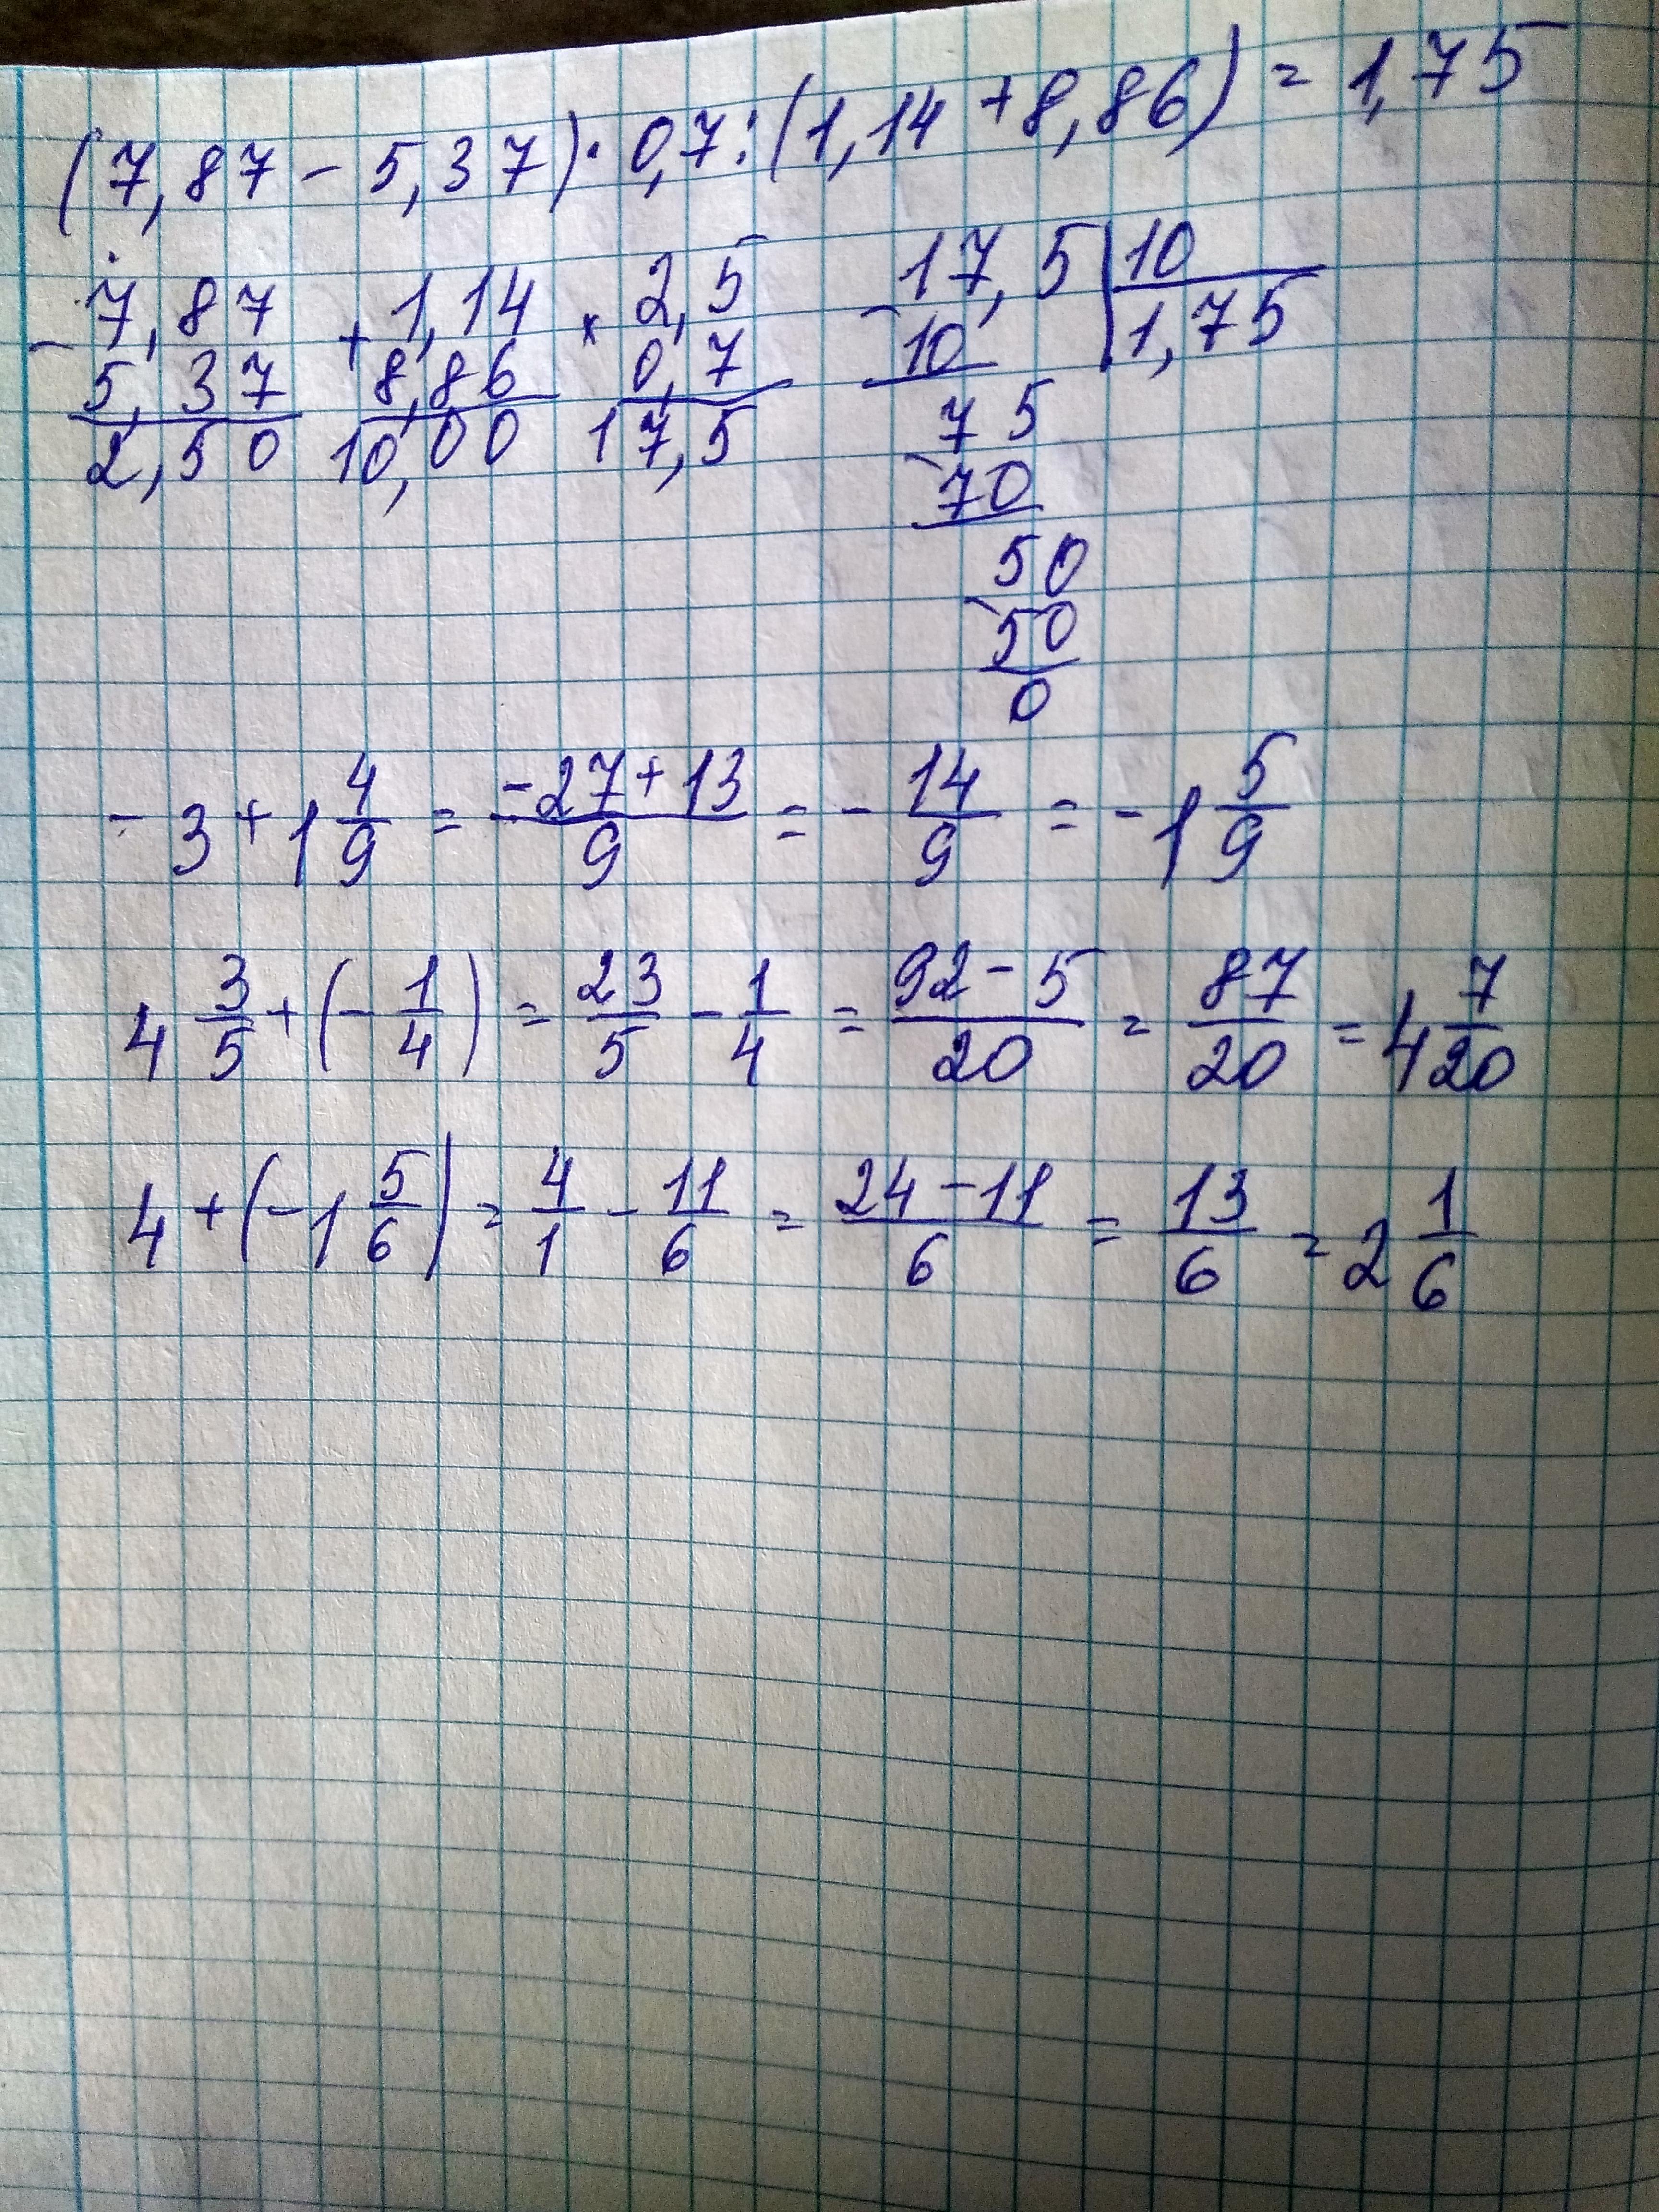 (7,87 - 5,37) · 0,7 : (1,14 + 8,86) = 1,75
- 7,87 + 1,14 × 2,5 - 17,5 | 10
5,37 8,86 0,7 10 1,75
2,50 10,00 17,5 75
- 70
50
- 50
0
- 3 + 1 4/9 = (-27 + 13)/9 = - 14/9 = - 1 5/9
4 3/5 + (- 1/4) = 23/5 - 1/4 = (92 - 5)/20 = 87/20 = 4 7/20
4 + (- 1 5/6) = 4/1 - 11/6 = (24 - 11)/6 = 13/6 = 2 1/6